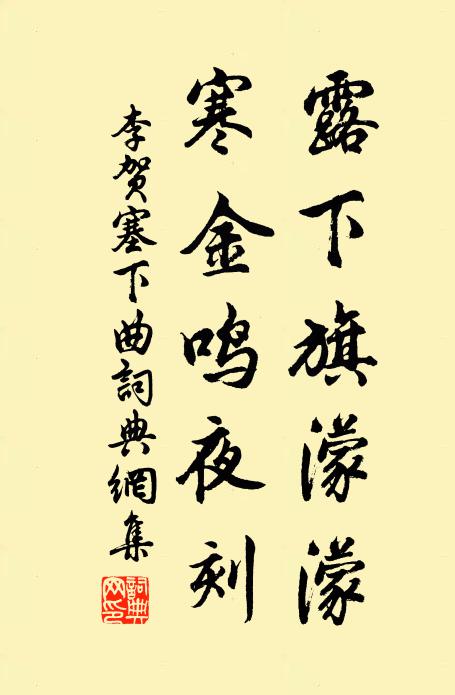 露下旗濛濛
寒金鸣夜刻
李贺塞下曲詞典網集
詞典
网印